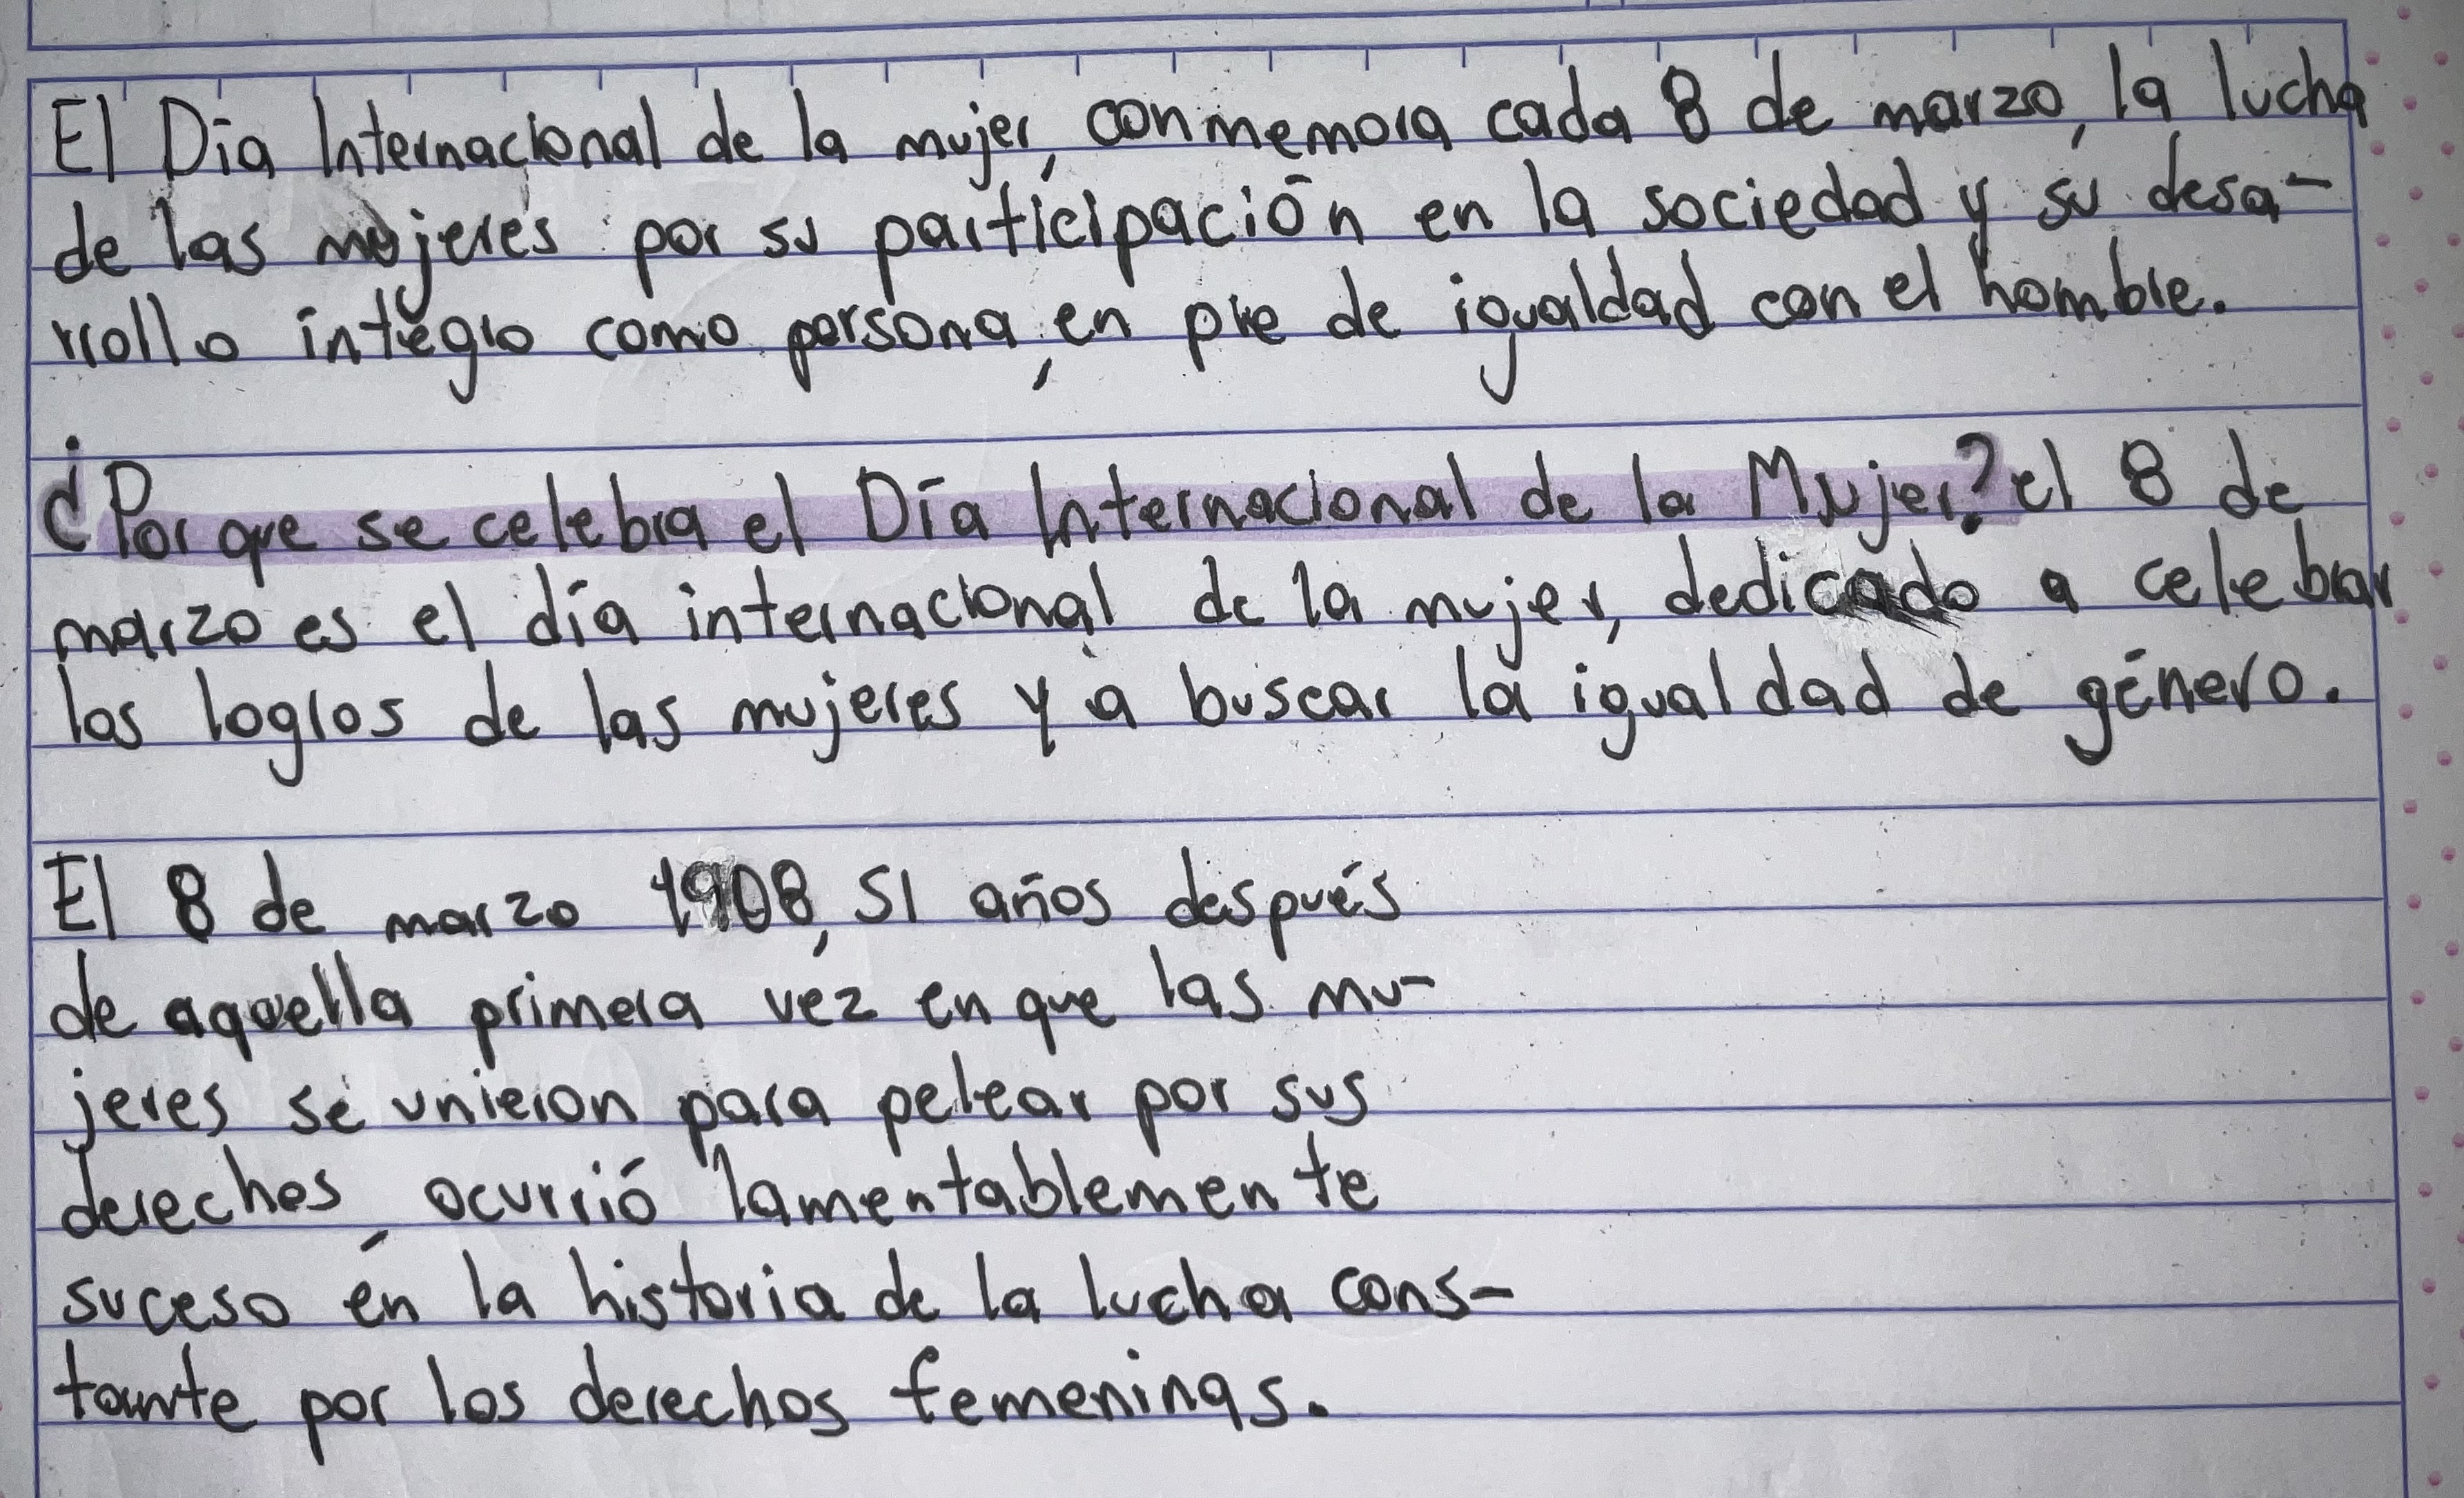 El Día Internacional de la mujer, conmemora cada 8 de marzo, la lucha
de las mujeres por su participación en la sociedad y su desa-
rrollo íntegro como persona, en pie de igualdad con el hombre.
¿Por que se celebra el Día Internacional de la Mujer? el 8 de
marzo es el día internacional de la mujer, dedicado a celebrar
los logros de las mujeres y a buscar la igualdad de género.
El 8 de marzo 1908, 51 años después
de aquella primera vez en que las mu-
jeres se unieron para pelear por sus
derechos, ocurrió lamentablemente
suceso en la historia de la lucha cons-
tante por los derechos femeninas.